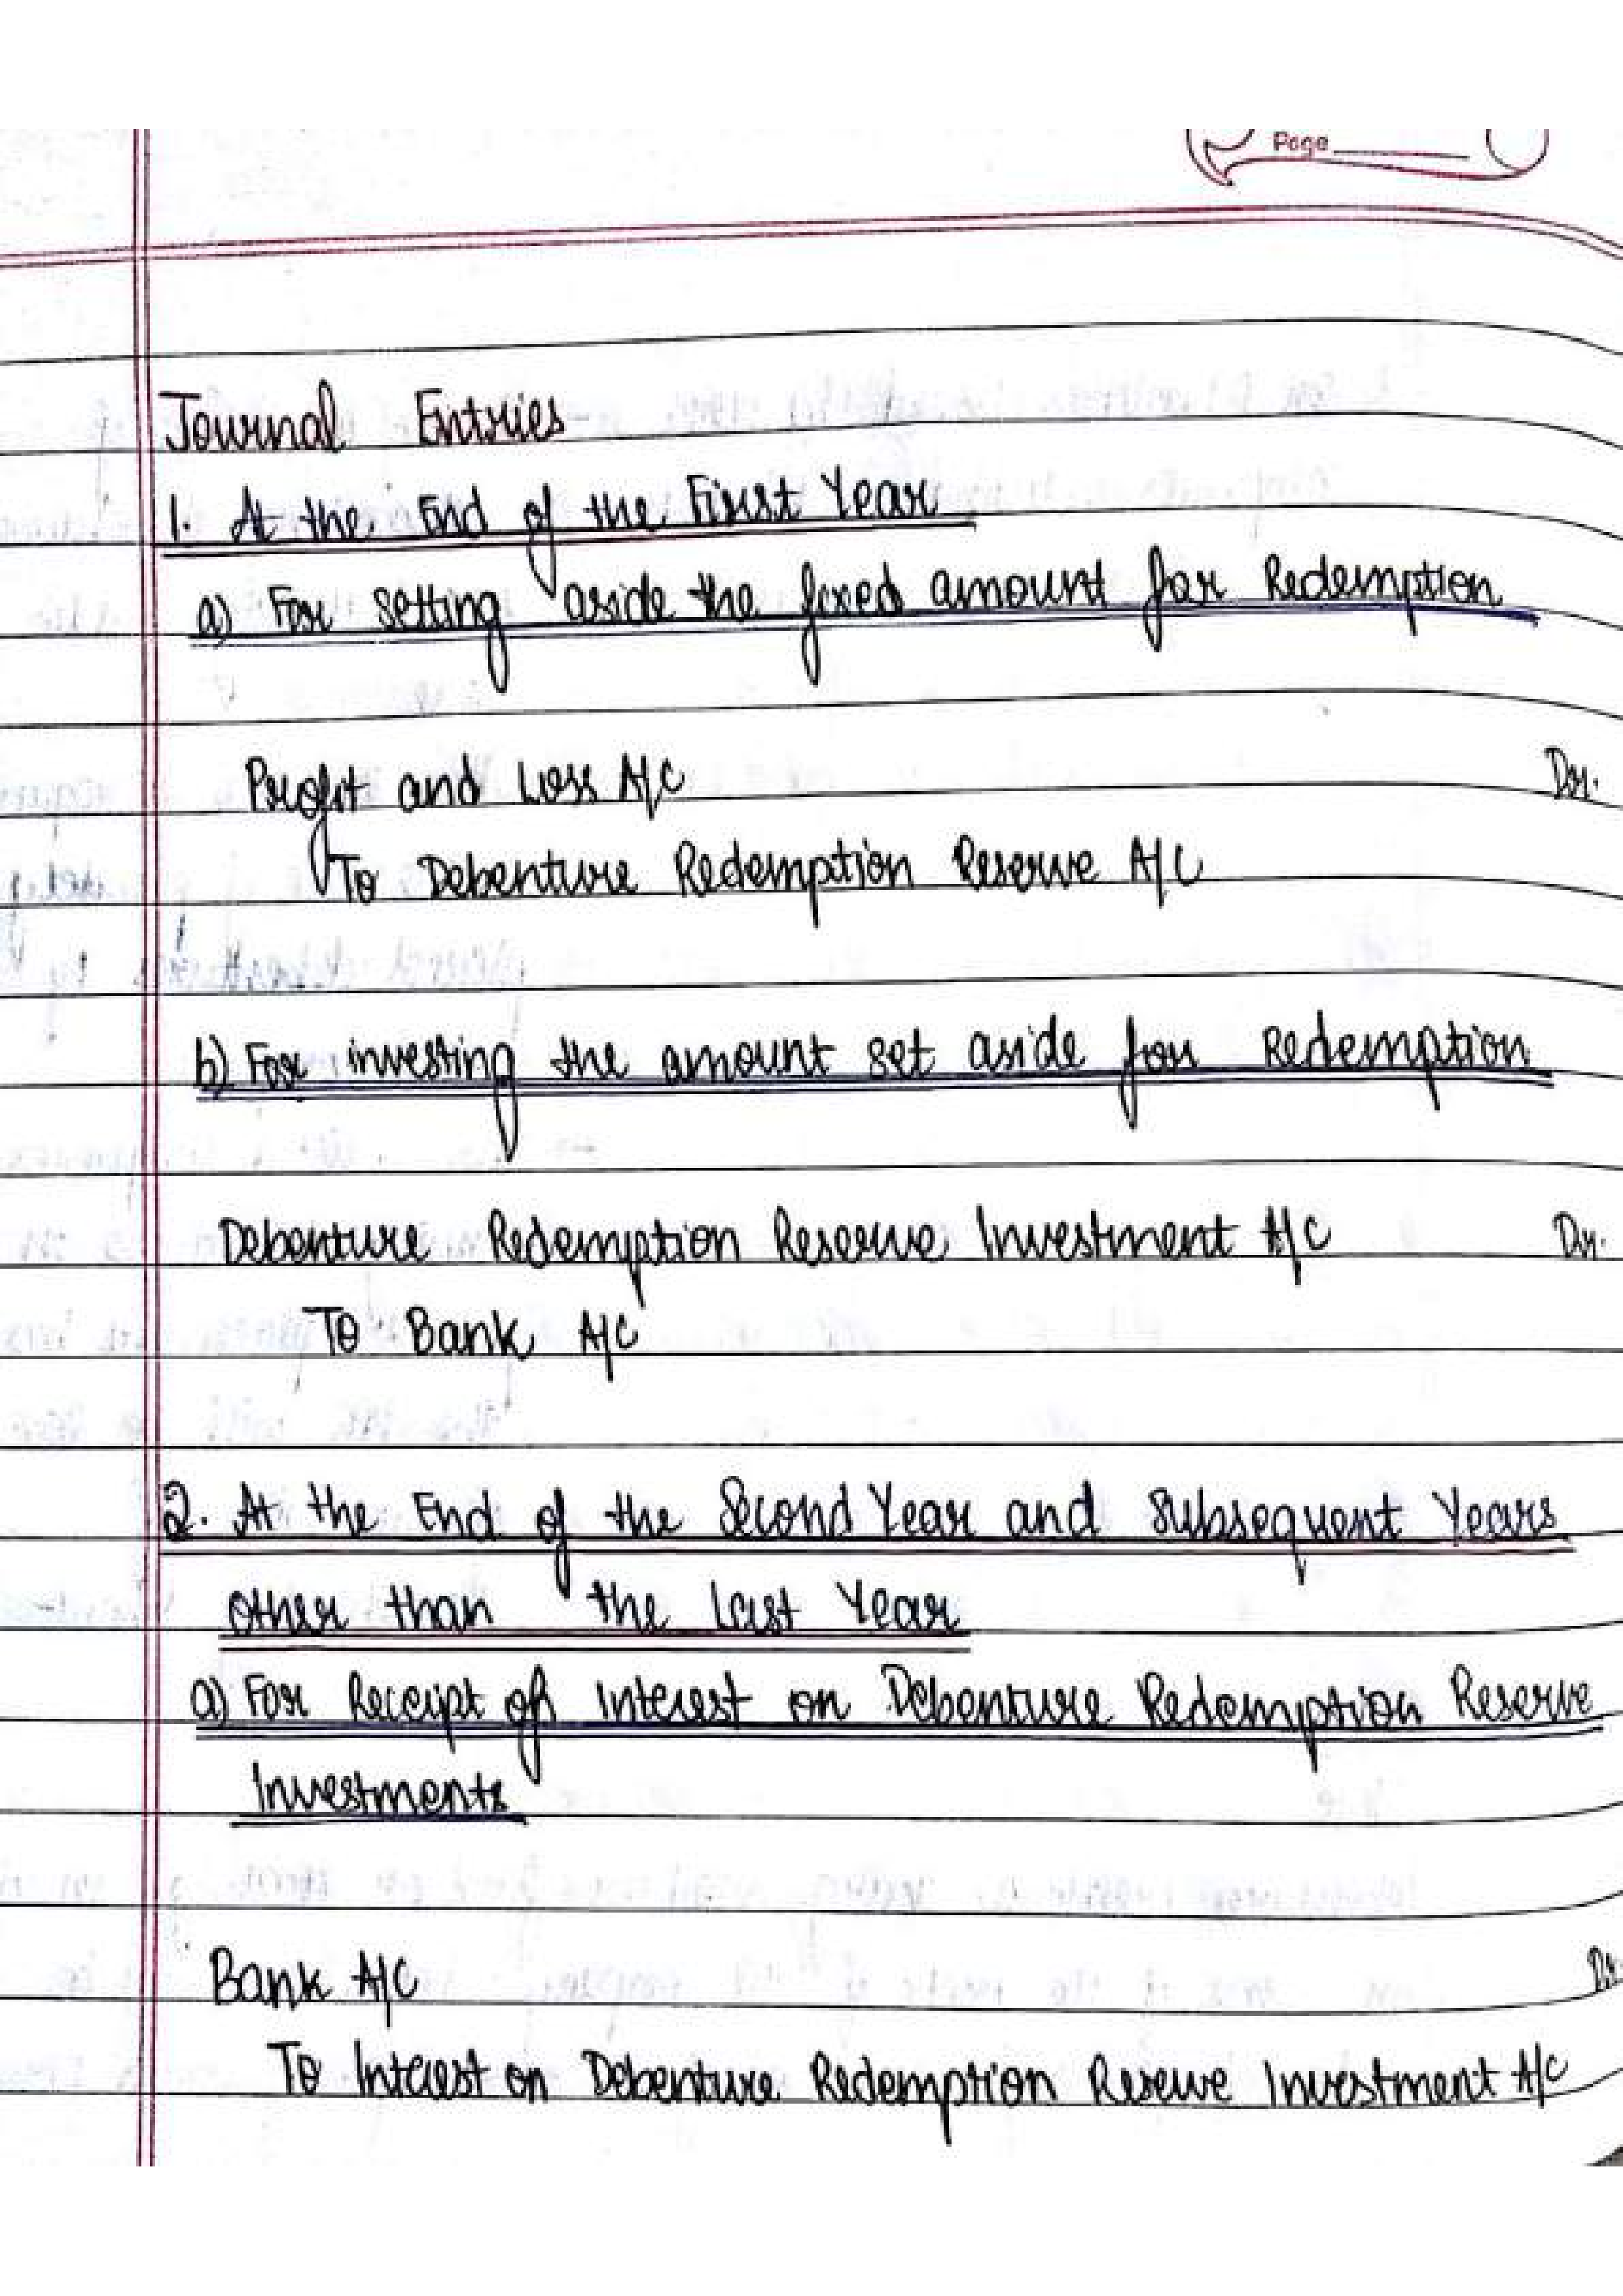 Page
Journal Entries
1. At the End of the First Year
a) For setting aside the fixed amount for Redemption
Profit and Loss A/C Dr.
To Debenture Redemption Reserve A/C
b) For investing the amount set aside for Redemption
Debenture Redemption Reserve Investment A/C Dr.
To Bank A/C
2. At the End of the Second Year and Subsequent Years
other than the Last Year
a) For Receipt of Interest on Debenture Redemption Reserve
Investments
Bank A/C Dr.
To Interest on Debenture Redemption Reserve Investment A/C